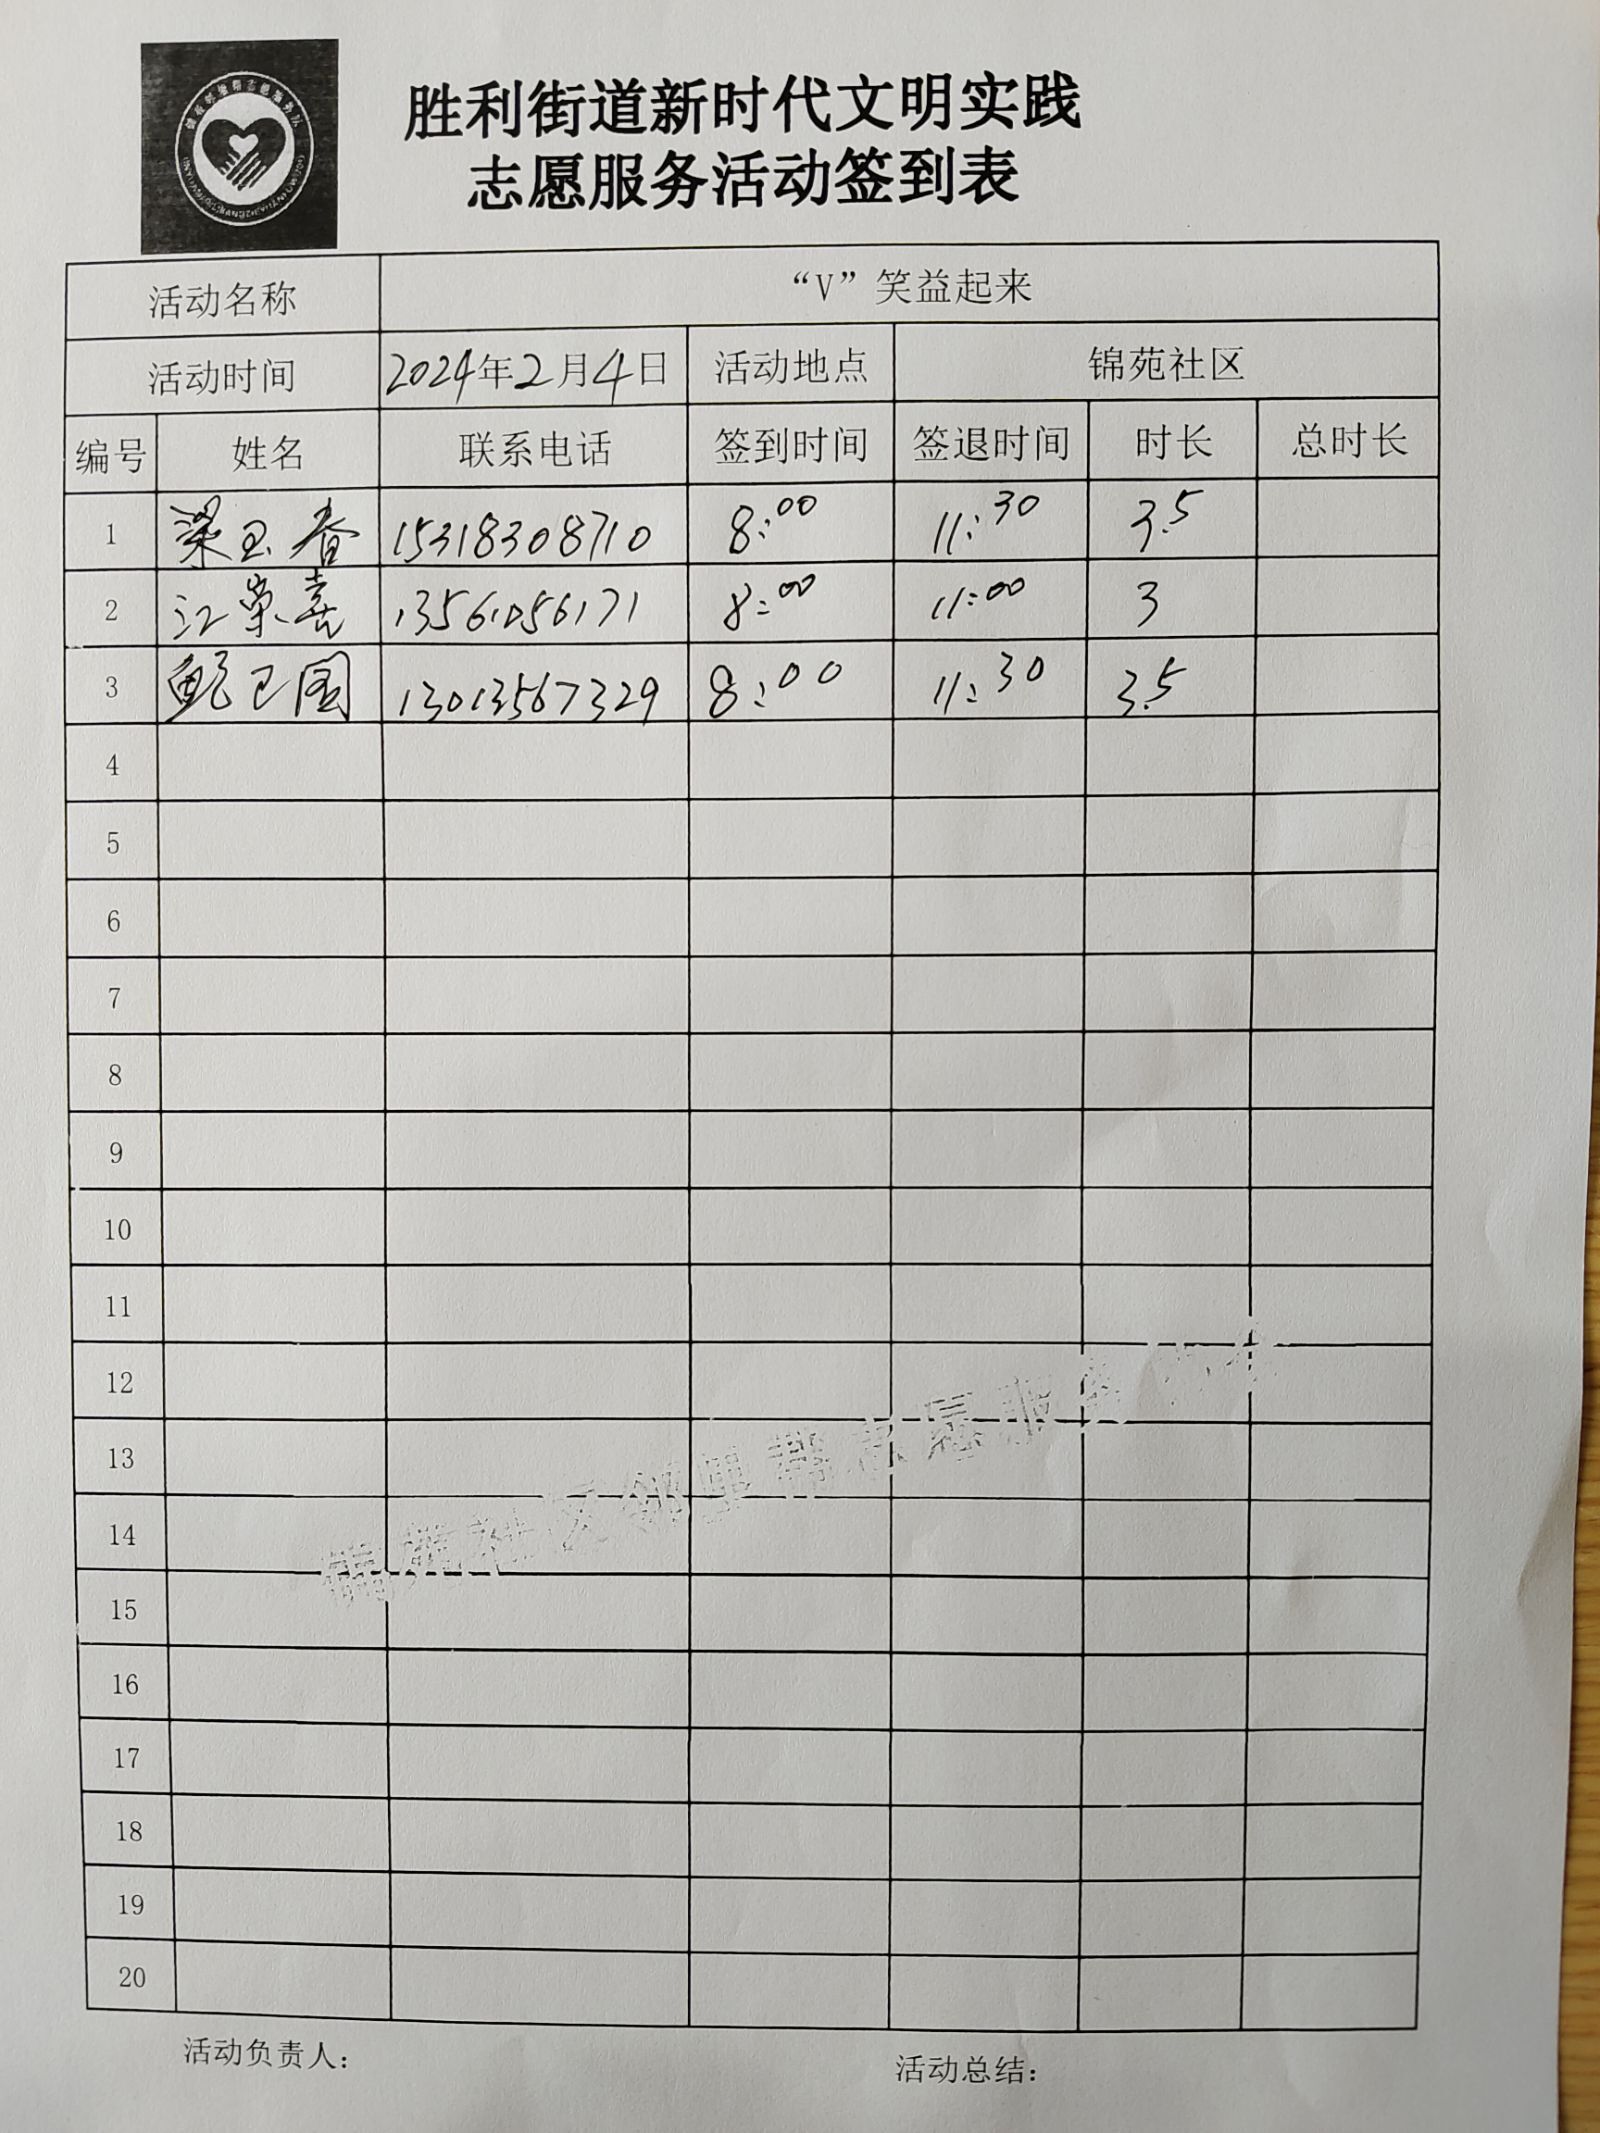 胜利街道新时代文明实践
志愿服务活动签到表
活动名称 “V”笑益起来
活动时间 2024年2月4日 活动地点 锦苑社区
编号 姓名 联系电话 签到时间 签退时间 时长 总时长
1 梁玉春 15318308710 8:00 11:30 3.5
2 江荣喜 13561056171 8:00 11:00 3
3 鲍卫国 13013567329 8:00 11:30 3.5
4
5
6
7
8
9
10
11
12
13
14
15
16
17
18
19
20
锦苑社区邻里帮志愿服务
活动负责人: 活动总结: